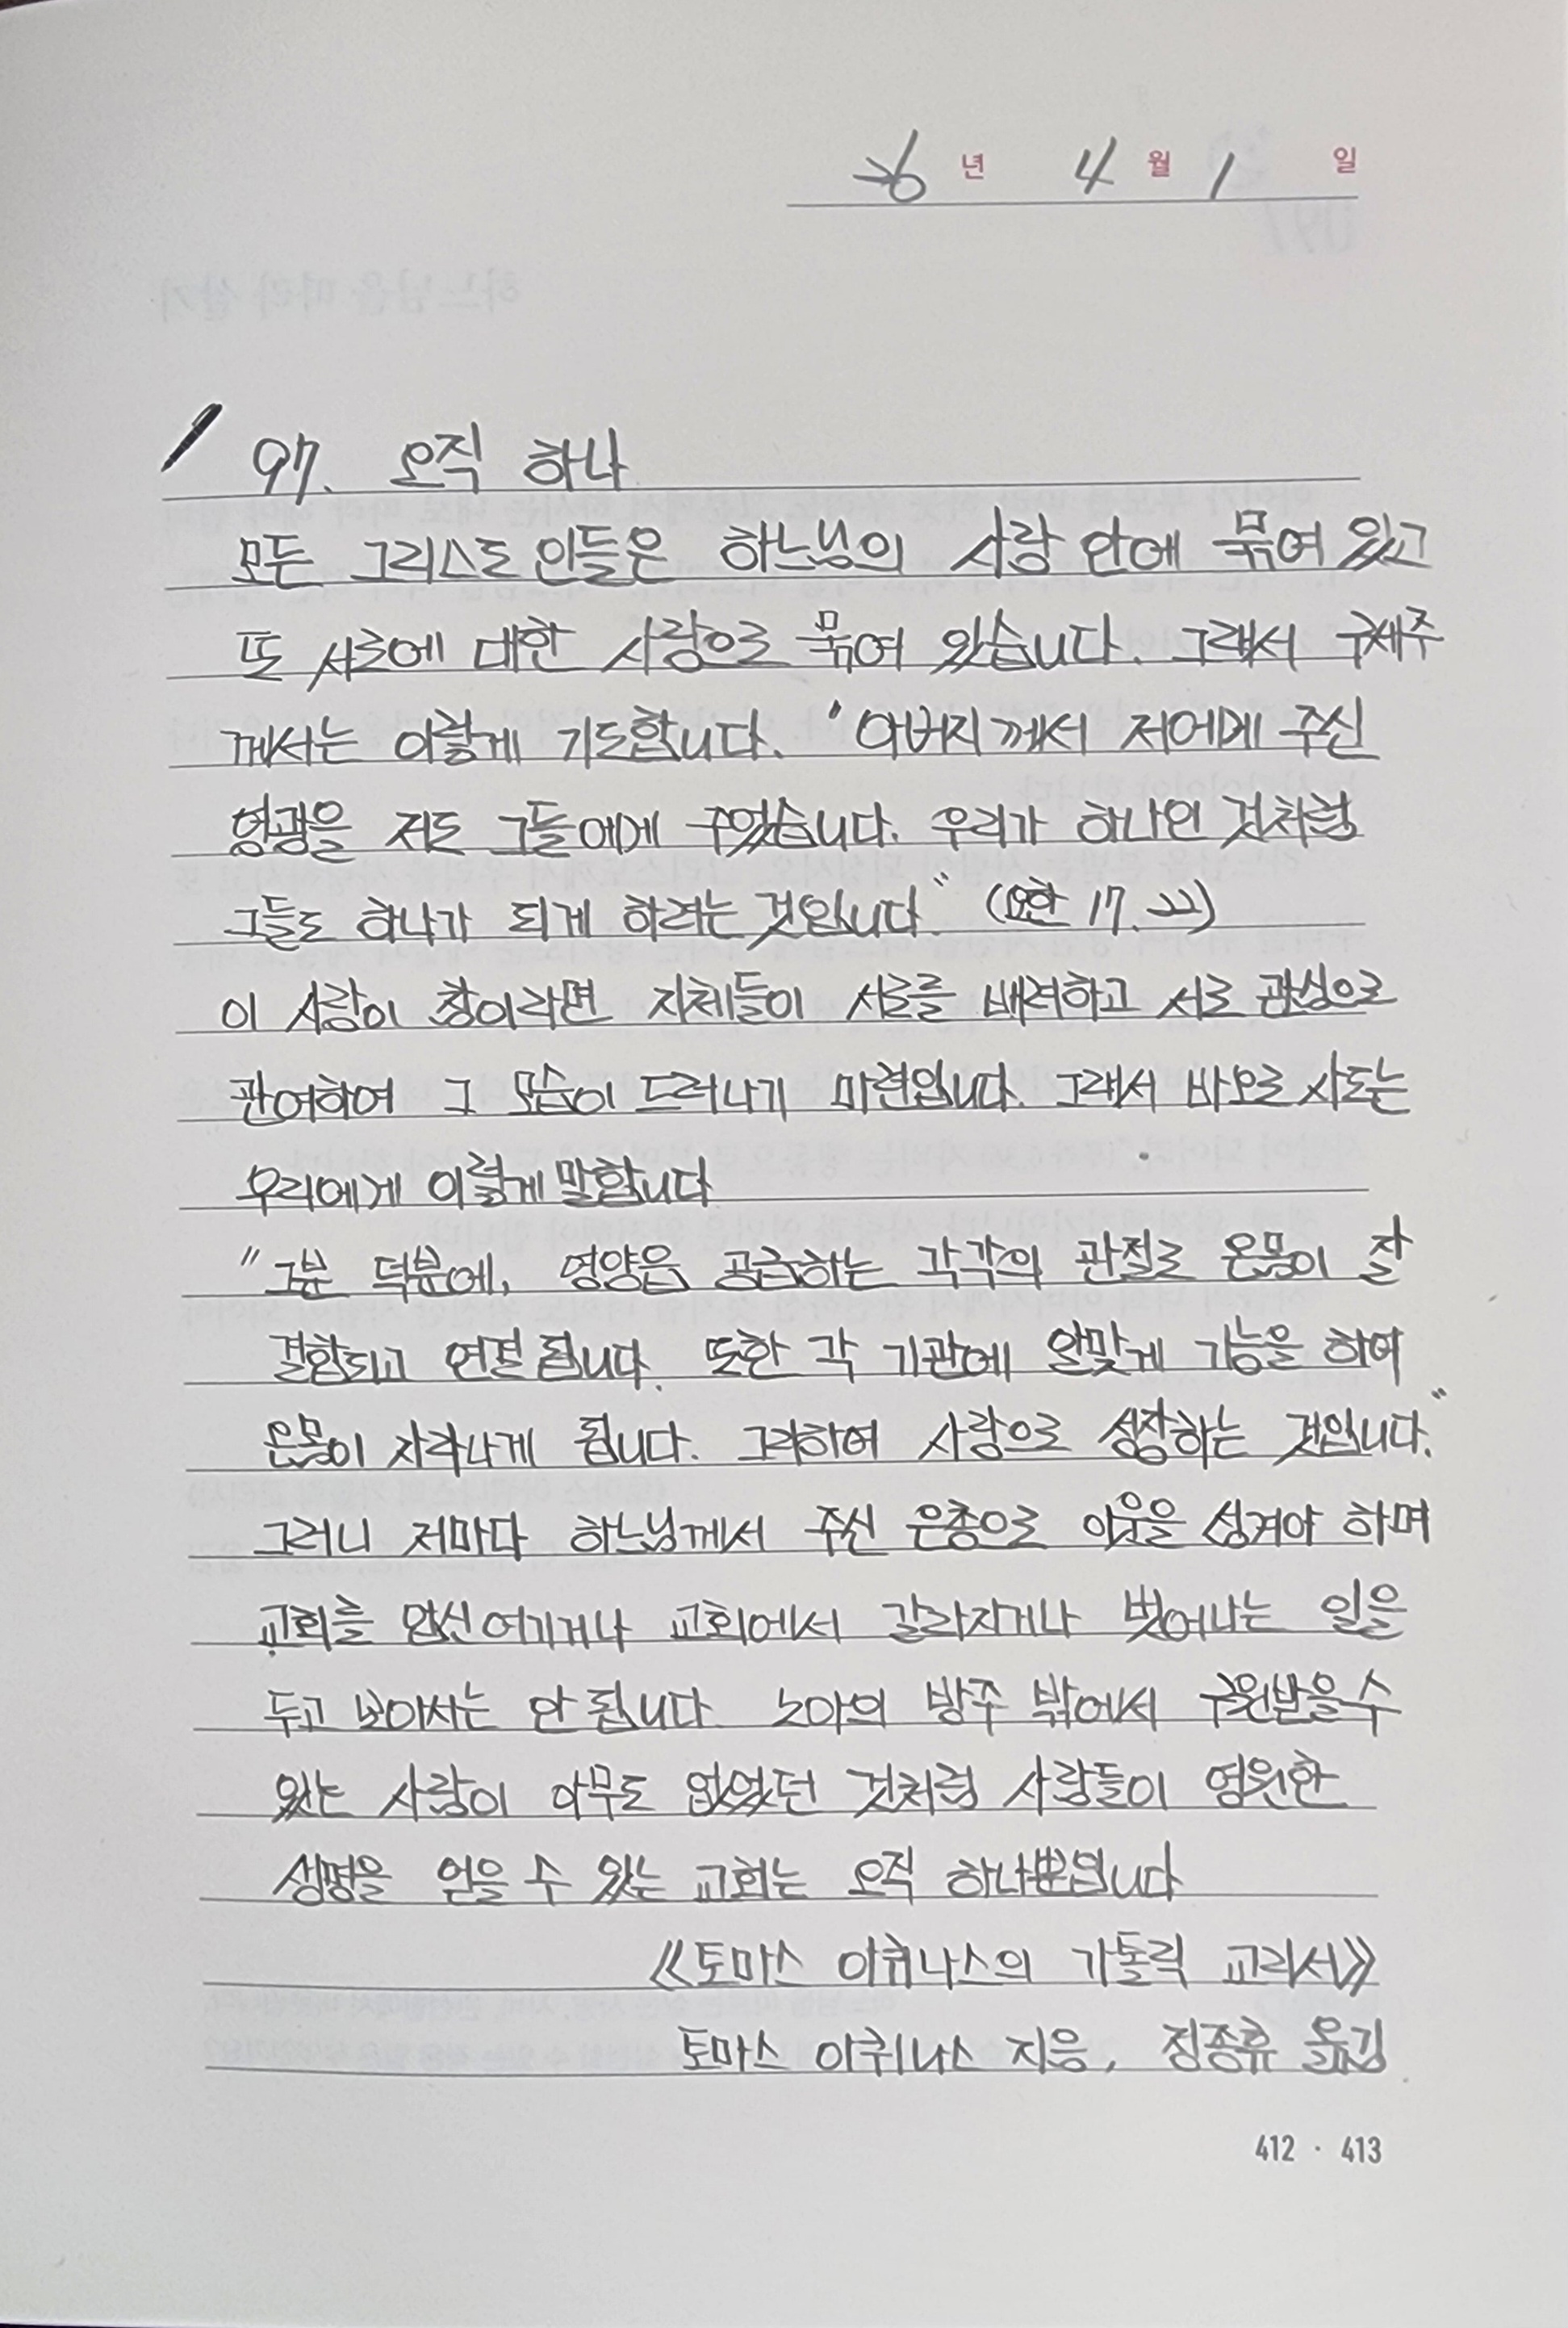 26년 4월 1일
97. 오직 하나
모든 그리스도인들은 하느님의 사랑 안에 묶여 있고
또 서로에 대한 사랑으로 묶여 있습니다. 그래서 구세주
께서는 이렇게 기도합니다. "아버지께서 저에게 주신
영광을 저도 그들에게 주었습니다. 우리가 하나인 것처럼
그들도 하나가 되게 하려는 것입니다." (요한 17. 22)
이 사랑이 참이라면 지체들이 서로를 배려하고 서로 관심으로
관여하여 그 모습이 드러나기 마련입니다. 그래서 바오로 사도는
우리에게 이렇게 말합니다
"그분 덕분에, 영양을 공급하는 각각의 관절로 온몸이 잘
결합되고 연결됩니다. 또한 각 기관에 알맞게 기능을 하여
온몸이 자라나게 됩니다. 그리하여 사랑으로 성장하는 것입니다."
그러니 저마다 하느님께서 주신 은총으로 이웃을 섬겨야 하며
교회를 업신여기거나 교회에서 갈라지거나 벗어나는 일을
두고 보아서는 안 됩니다 노아의 방주 밖에서 구원받을 수
있는 사람이 아무도 없었던 것처럼 사람들이 영원한
생명을 얻을 수 있는 교회는 오직 하나뿐입니다
《토마스 아퀴나스의 가톨릭 교리서》
토마스 아퀴나스 지음, 정종휴 옮김
412 · 413